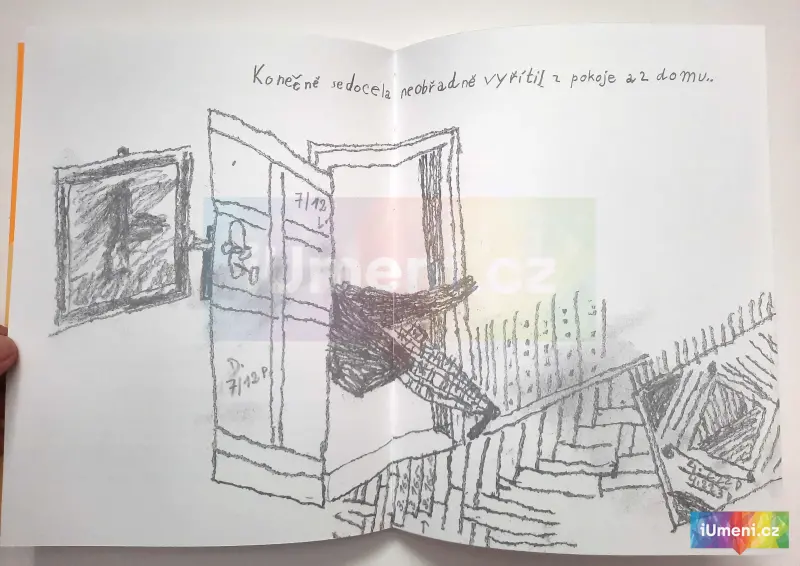 Konečně sedocela neobřadně vyřítil z pokoje a z domu..
7/12
L
iUmeni.cz
D.
7/12 P.
iUmeni.cz